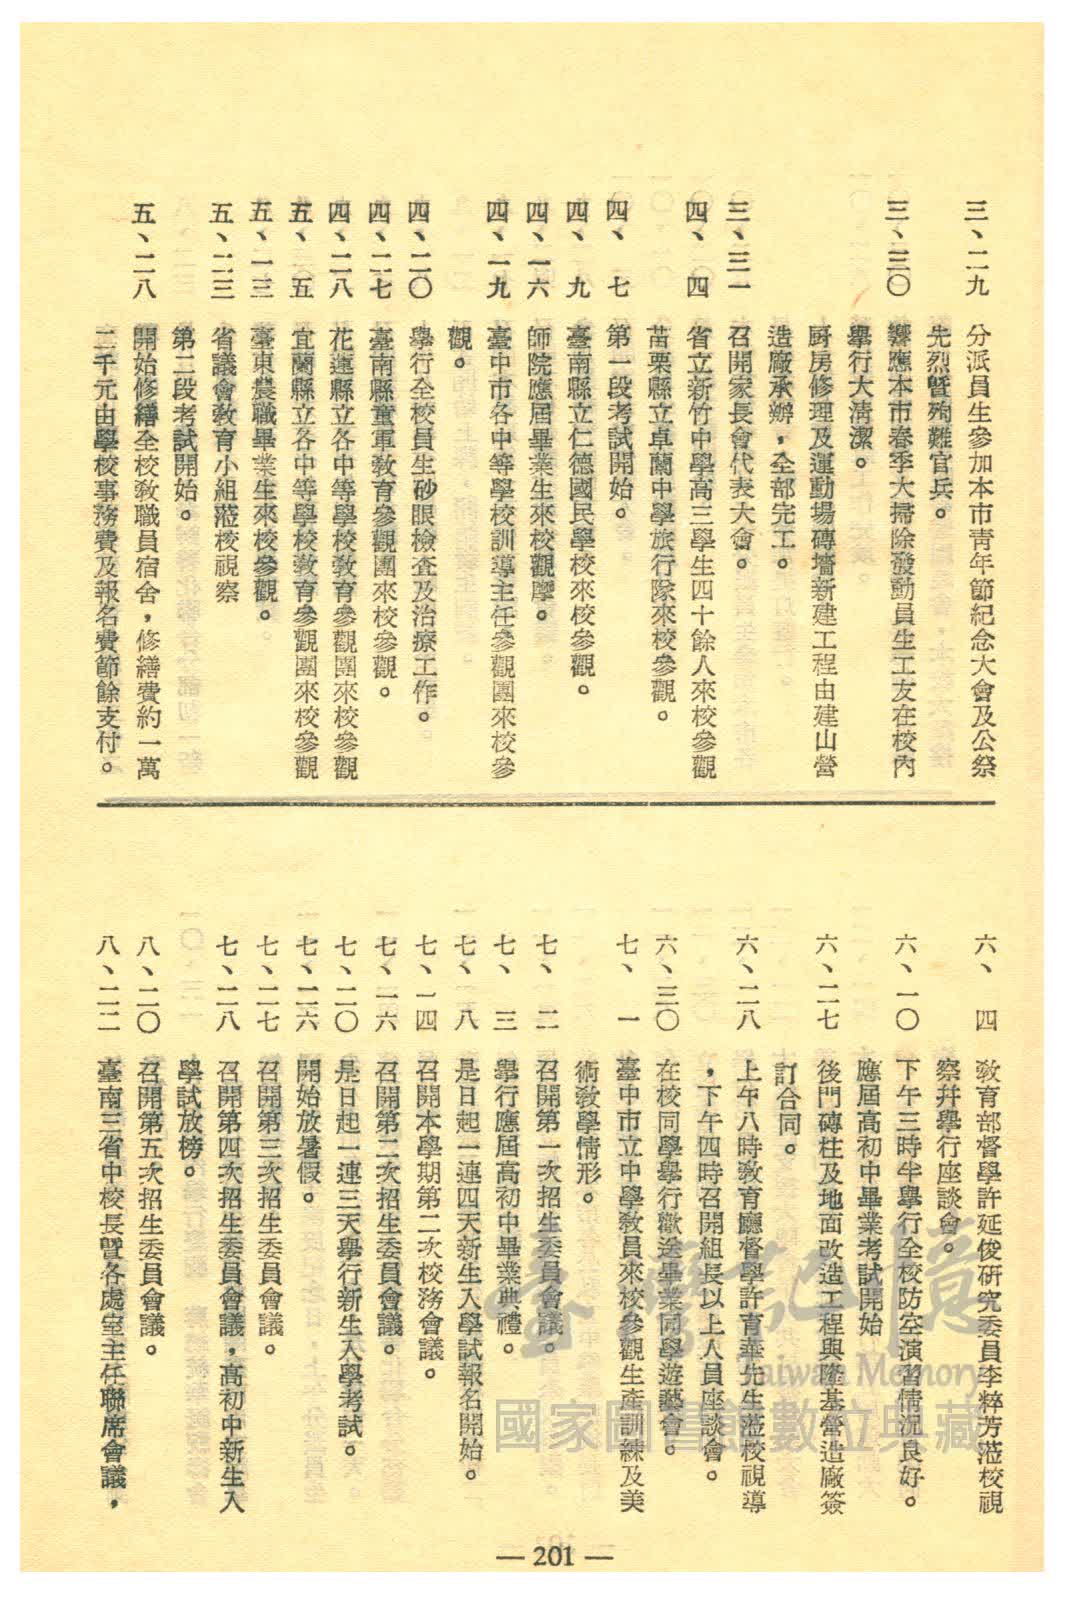 三、二九　分派員生參加本市青年節紀念大會及公祭
先烈曁殉難官兵。
三、三〇　響應本市春季大掃除發動員生工友在校內
舉行大淸潔。
厨房修理及運動場磚墻新建工程由建山營
造廠承辦，全部完工。
三、三一　召開家長會代表大會。
四、　四　省立新竹中學高三學生四十餘人來校參觀
苗栗縣立卓蘭中學旅行隊來校參觀。
四、　七　第一段考試開始。
四、　九　臺南縣立仁德國民學校來校參觀。
四、一六　師院應屆畢業生來校觀摩。
四、一九　臺中市各中等學校訓導主任參觀團來校參
觀。
四、二〇　舉行全校員生砂眼檢查及治療工作。
四、二七　臺南縣童軍敎育參觀團來校參觀。
四、二八　花蓮縣立各中等學校敎育參觀團來校參觀
五、　五　宜蘭縣立各中等學校敎育參觀團來校參觀
五、一三　臺東農職畢業生來校參觀。
五、二三　省議會敎育小組蒞校視察
第二段考試開始。
五、二八　開始修繕全校敎職員宿舍，修繕費約一萬
二千元由學校事務費及報名費節餘支付。
六、　四　敎育部督學許延俊硏究委員李粹芳蒞校視
察幷舉行座談會。
六、一〇　下午三時半舉行全校防空演習情況良好。
應屆高初中畢業考試開始
六、二七　後門磚柱及地面改造工程與隆基營造廠簽
訂合同。
六、二八　上午八時敎育廳督學許育華先生蒞校視導
，下午四時召開組長以上人員座談會。
六、三〇　在校同學舉行歡送畢業同學遊藝會。
七、　一　臺中市立中學敎員來校參觀生產訓練及美
術敎學情形。
七、　二　召開第一次招生委員會議。
七、　三　舉行應屆高初中畢業典禮。
七、　八　是日起一連四天新生入學試報名開始。
七、一四　召開本學期第二次校務會議。
七、一六　召開第二次招生委員會議。
七、二〇　是日起一連三天舉行新生入學考試。
七、二六　開始放暑假。
七、二七　召開第三次招生委員會議。
七、二八　召開第四次招生委員會議，高初中新生入
學試放榜。
八、二〇　召開第五次招生委員會議。
八、二二　臺南三省中校長曁各處室主任聯席會議，
臺灣記憶
Taiwan Memory
國家圖書館數位典藏
— 201 —